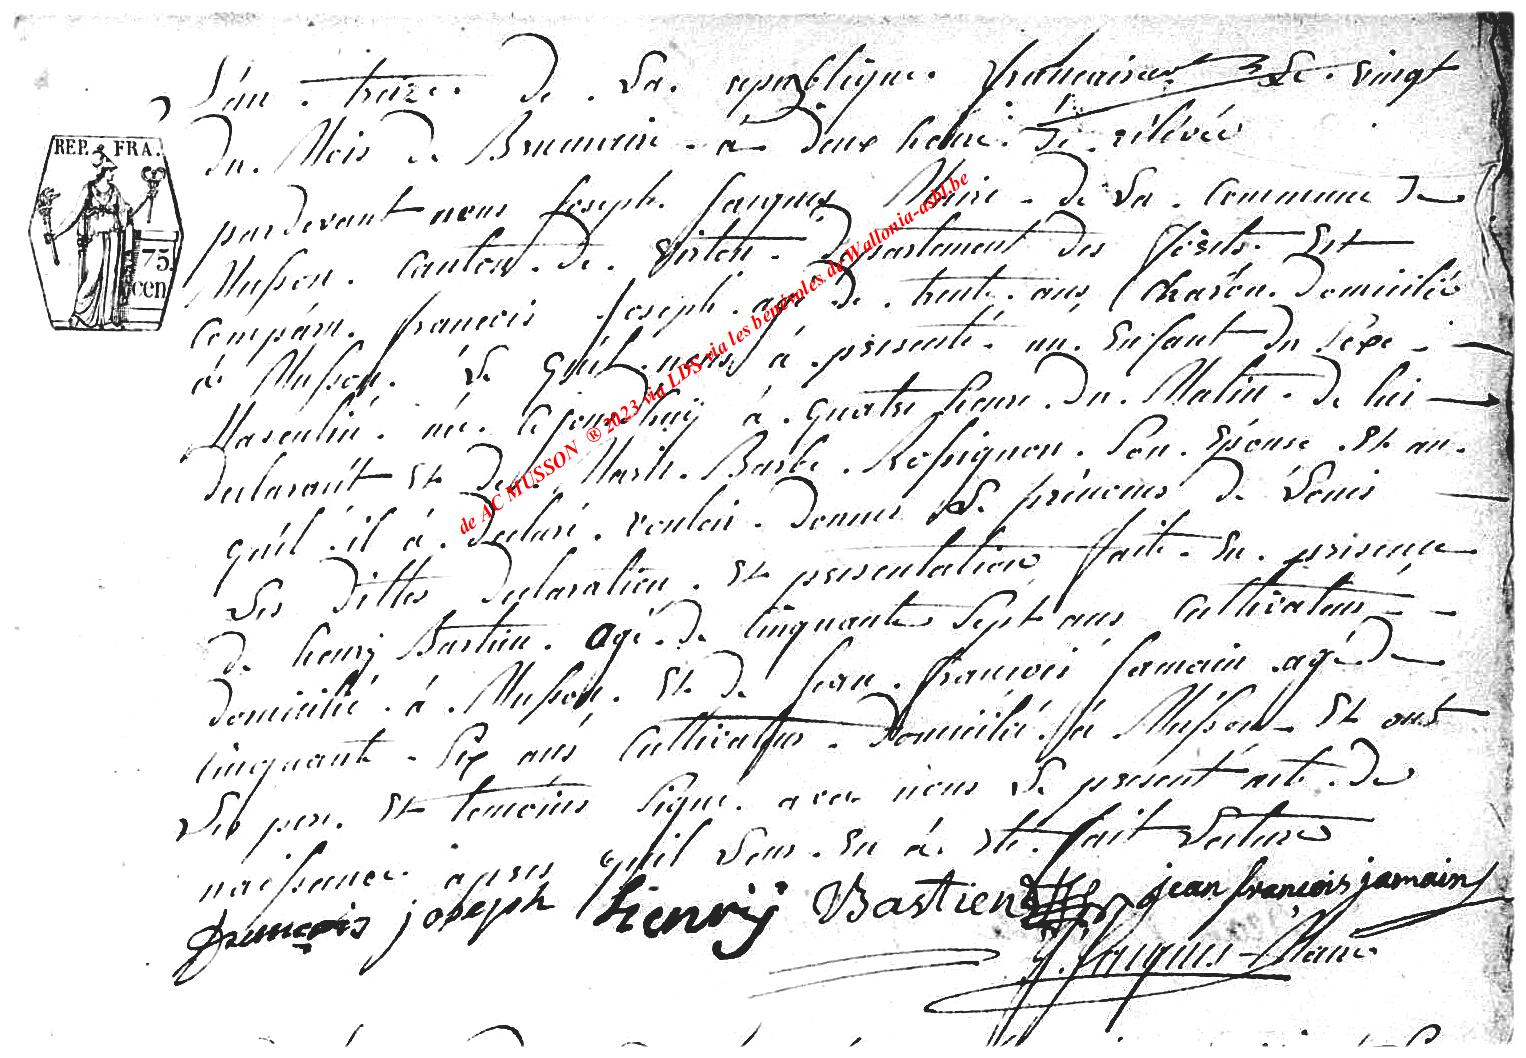 L'an treize de la republique francaise Le vingt
du Mois de Brumaire à deux heure de rélévée
REP. FRA.
75.
cen
pardevant nous Joseph Jacques Maire de la commune de
Musson canton de Virton departement des forêts Est
comparu francois Joseph agé de trente ans Charon domicilié
à Musson Le quel nous à présenté un Enfant du Sexe
Masculin né cejourdhuÿ à quatre heure du Matin de lui
declarant et de Marie Barbe Rossignon Son Epouse et au
quel il à declaré vouloir donner le prénoms de Denis
Les dittes declaration et presentation fait en presence
de henrÿ Bastien agé de cinquante Sept ans cultivateur
domicilié à Musson et de Jean francois Jamain agé de
cinquante Six ans cultivateur domicilié à Musson et ont
Les pere et temoins Signe avec nous Le present acte de
naissance apres quil Leur en à eté fait Lecture
francois joseph henrÿ Bastien jean francois jamain
J. Jacques Maire
de AC MUSSON ® 2023 via LDS via les bénévoles de Wallonia-asbl.be